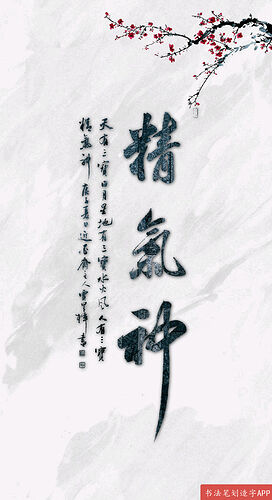 精氣神
天有三寶日月星地有三寶水火風人有三寶
精氣神 庚子夏日近齋主人書
书法笔划造字APP